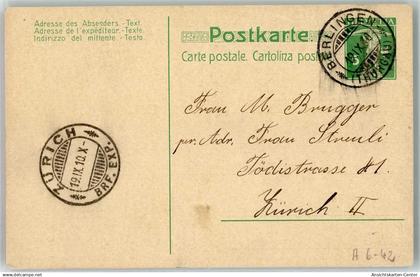 Adresse des Absenders.-Text
Adresse de l'expéditeur.-Texte.
Indirizzo del mittente.-Testo.
Postkarte.
Carte postale. Cartolina postale
BERLINGEN
(THURGAU)
Frau M. Brugger
pr. Adr. Frau Streuli
Tödistrasse 41
Zürich II
ZÜRICH
19.IX.10.X-
BRF. EXP.
A 6-42